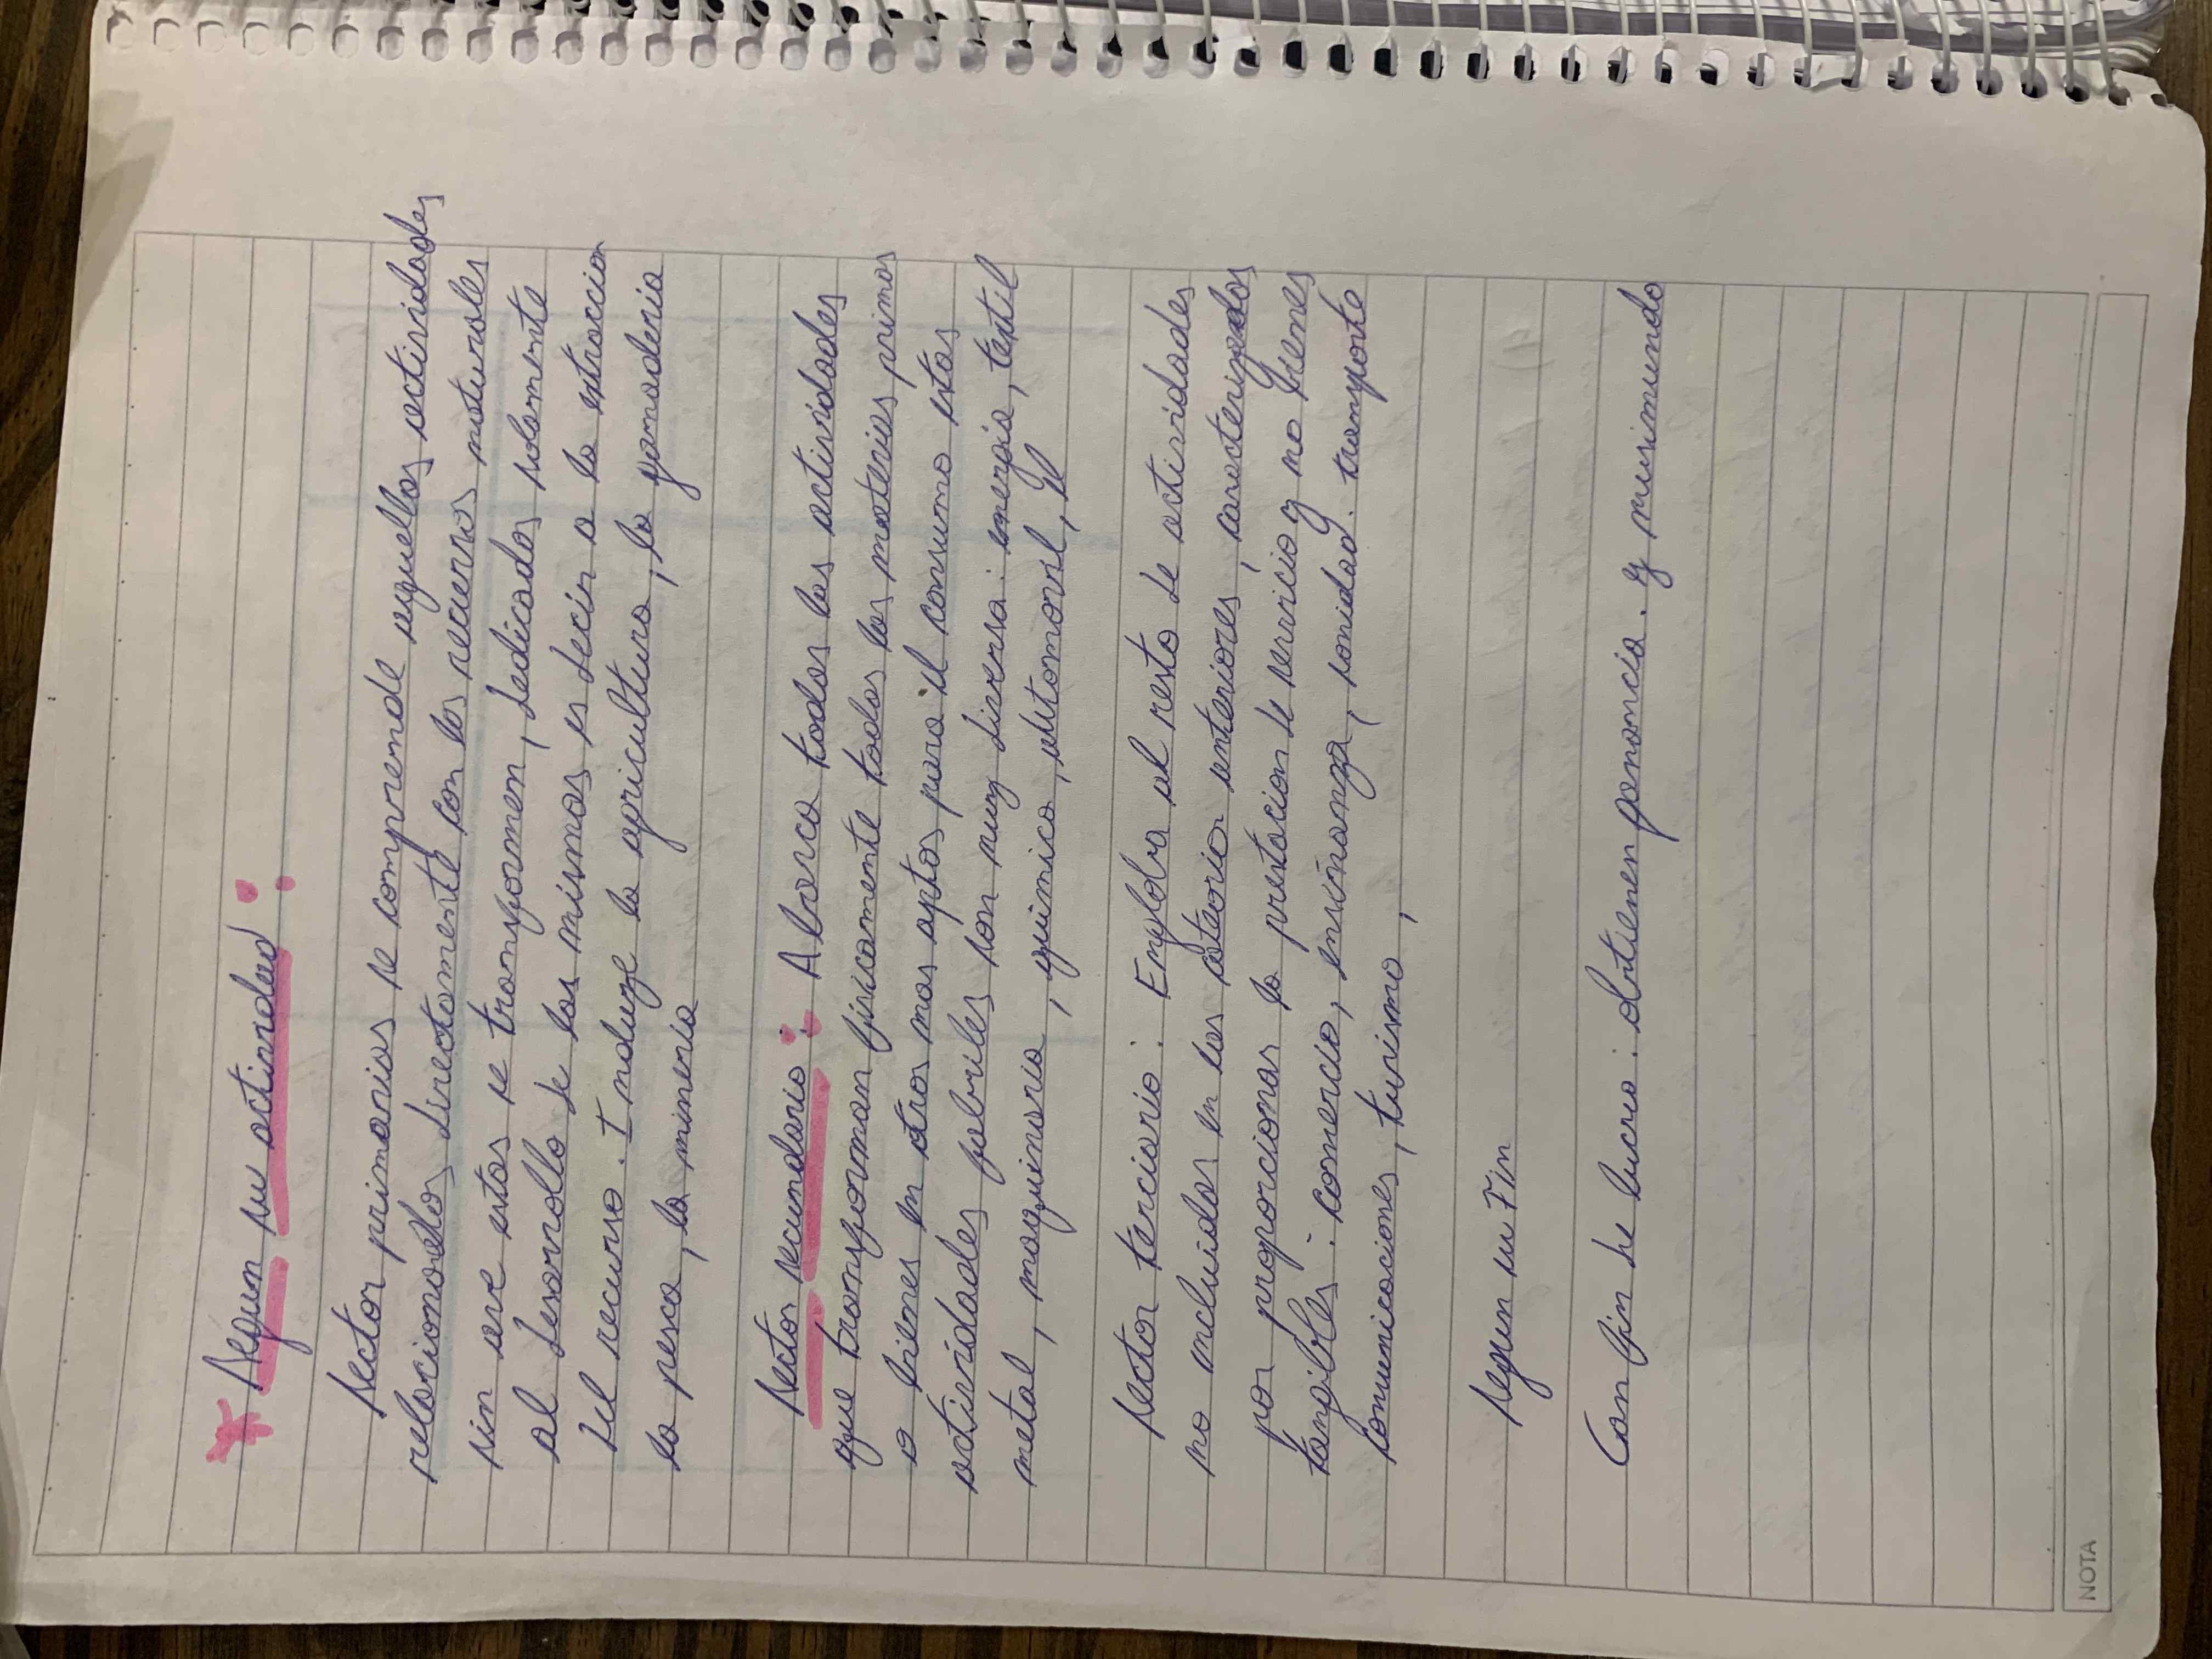 * Según su actividad :
Sector primarios se comprende aquellas actividades
relacionados directamente con los recursos naturales
sin que estas se transformen, dedicados solamente
al desarrollo de los mismos es decir a la extraccion
del recurso. Induze la agricultura, la ganaderia
la pesca, la mineria
Sector secundario : Abarca todas las actividades
que transforman fisicamente todas las materias primas
o bienes en otros mas aptos para el consumo estas
actividades fabriles son muy diversa: energia, textil
metal, maquinaria, quimica, automovil, Il
Sector terciario: Engloba al resto de actividades
no incluidas en las anteriores, caracterizados
por proporcionar la prestacion de servicio y no bienes
tangibles: comercio, enseñanza, sanidad. transporte
comunicaciones, turismo,
Segun su Fin
Con fin de lucro: obtienen ganancia. y
NOTA